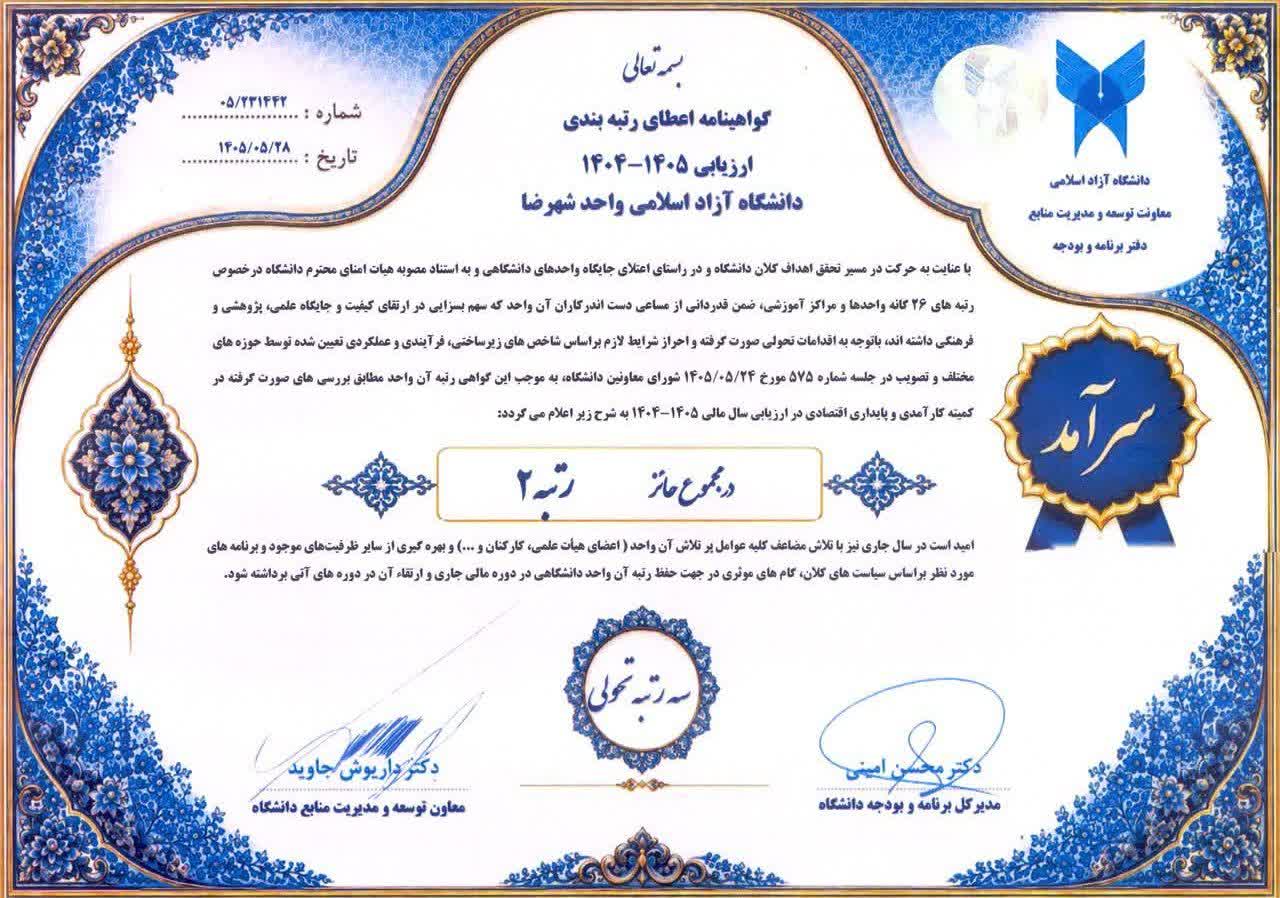 بسمه تعالی
گواهینامه اعطای رتبه بندی
ارزیابی ۱۴۰۵-۱۴۰۴
دانشگاه آزاد اسلامی واحد شهرضا
شماره : ۰۵/۲۳۱۴۴۲
تاریخ : ۱۴۰۵/۰۵/۲۸
دانشگاه آزاد اسلامی
معاونت توسعه و مدیریت منابع
دفتر برنامه و بودجه
با عنایت به حرکت در مسیر تحقق اهداف کلان دانشگاه و در راستای اعتلای جایگاه واحدهای دانشگاهی و به استناد مصوبه هیات امنای محترم دانشگاه درخصوص
رتبه های ۲۶ گانه واحدها و مراکز آموزشی، ضمن قدردانی از مساعی دست اندرکاران آن واحد که سهم بسزایی در ارتقای کیفیت و جایگاه علمی، پژوهشی و
فرهنگی داشته اند، باتوجه به اقدامات تحولی صورت گرفته و احراز شرایط لازم براساس شاخص های زیرساختی، فرآیندی و عملکردی تعیین شده توسط حوزه های
مختلف و تصویب در جلسه شماره ۵۷۵ مورخ ۱۴۰۵/۰۵/۲۴ شورای معاونین دانشگاه، به موجب این گواهی رتبه آن واحد مطابق بررسی های صورت گرفته در
کمیته کارآمدی و پایداری اقتصادی در ارزیابی سال مالی ۱۴۰۵-۱۴۰۴ به شرح زیر اعلام می گردد:
سرآمد
در مجموع حائز رتبه ۲
امید است در سال جاری نیز با تلاش مضاعف کلیه عوامل پر تلاش آن واحد ( اعضای هیأت علمی، کارکنان و ...) و بهره گیری از سایر ظرفیت‌های موجود و برنامه های
مورد نظر براساس سیاست های کلان، گام های موثری در جهت حفظ رتبه آن واحد دانشگاهی در دوره مالی جاری و ارتقاء آن در دوره های آتی برداشته شود.
سه رتبه تحولی
دکتر محسن امینی
مدیرکل برنامه و بودجه دانشگاه
دکتر داریوش جاوید
معاون توسعه و مدیریت منابع دانشگاه